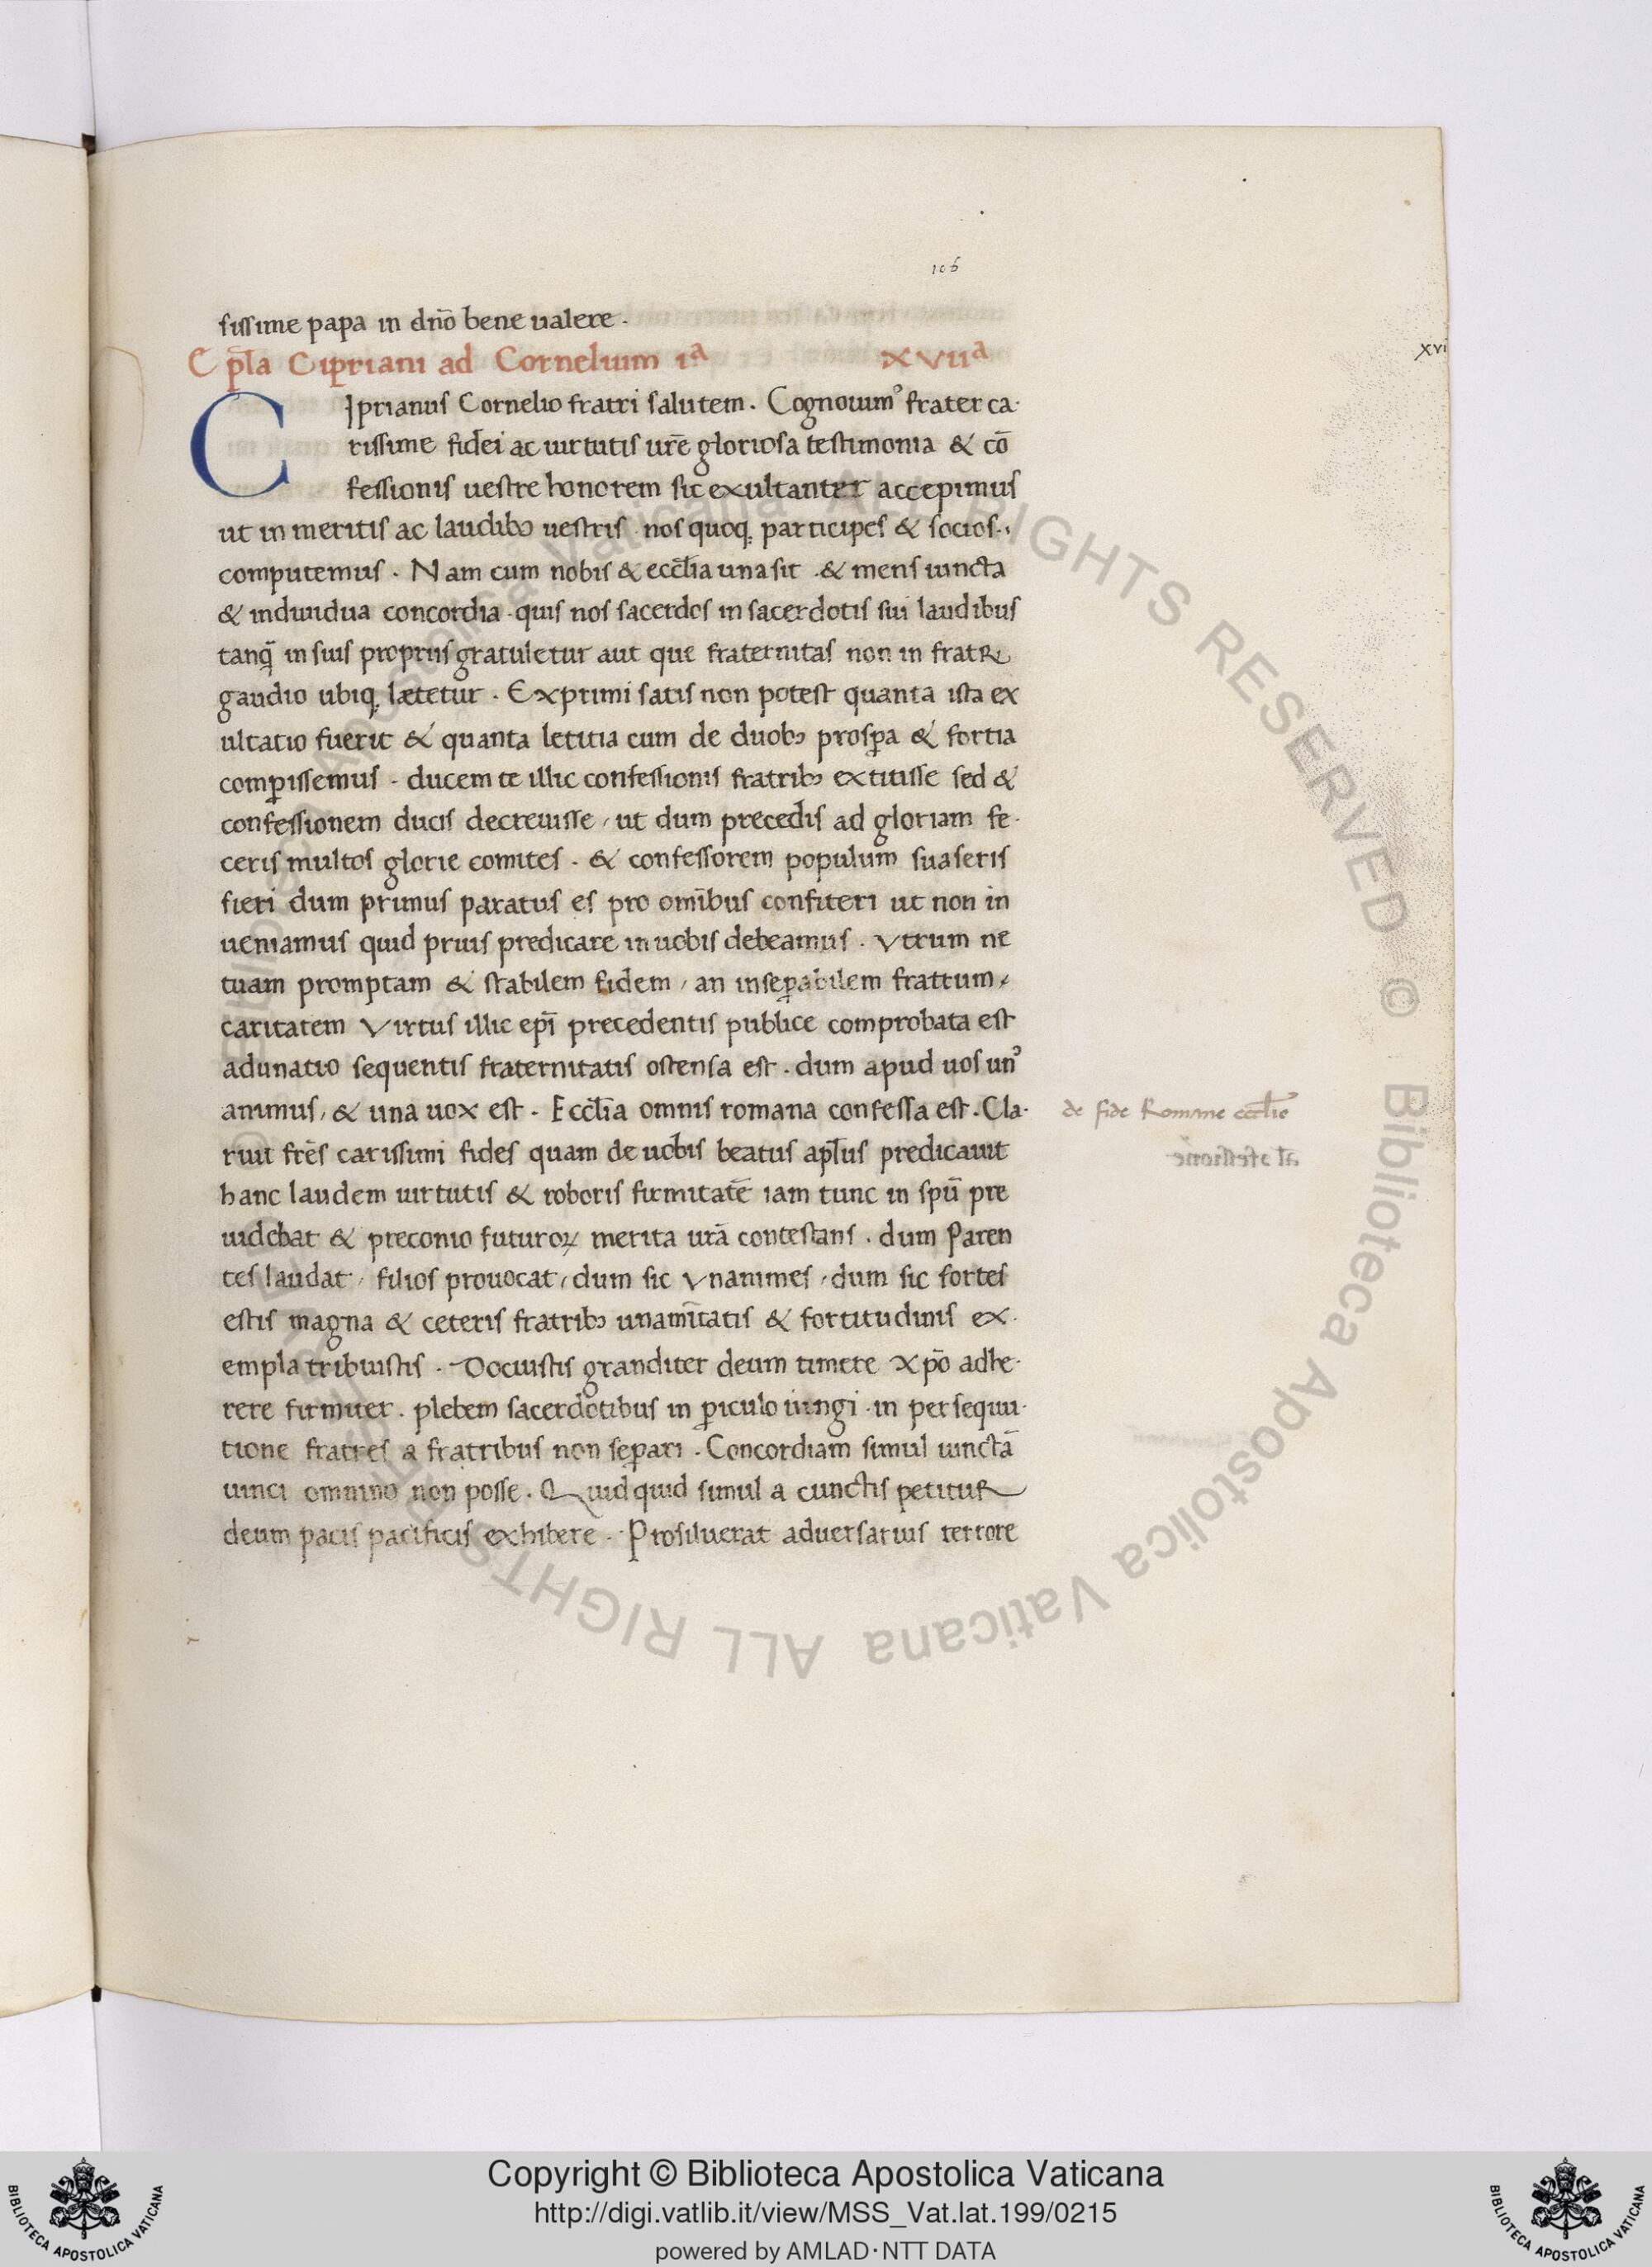 106
sissime papa in dño bene ualere.
Epl̄a Cipriani ad Cornelium iª xviiª
xvi
CJprianus Cornelio fratri salutem. Cognouimꝰ frater ca-
rissime fidei ac uirtutis ur̄e gloriosa testimonia & cō
fessionis uestre honorem sic exultanter accepimus
ut in meritis ac laudibꝫ uestris nos quoqꝫ participes & socios
computemus. Nam cum nobis & eccl̄ia una sit & mens iuncta
& indiuidua concordia. quis nos sacerdos in sacerdotis sui laudibus
tanq̄ in suis propriis gratuletur aut que fraternitas non in fratR
gaudio ubiqꝫ lætetur. Exprimi satis non potest quanta ista ex
ultatio fuerit & quanta letitia cum de duobꝫ prosꝑa & fortia
comꝑissemus. ducem te illic confessionis fratribꝫ extitisse sed &
confessionem ducis decreuisse, ut dum precedis ad gloriam fe-
ceris multos glorie comites. & confessorem populum suaseris
fieri dum primus paratus es pro omībus confiteri ut non in
ueniamus quid prius predicare in uobis debeamus. Vtrum ne
tuam promptam & stabilem fidem, an inseꝑabilem fratrum,
caritatem Virtus illic epī precedentis publice comprobata est
adunatio sequentis fraternitatis ostensa est. dum apud uos unꝰ
animus, & una uox est. Eccl̄ia omnis romana confessa est. Cla-
de fide Romane eccl̄ie
ruit fr̄es carissimi fides quam de uobis beatus apl̄us predicauit
al̄ ɔfessione
hanc laudem uirtutis & roboris firmitatē iam tunc in spū pre
uidebat & preconio futuroꝝ merita urā contestans. dum Paren
tes laudat, filios prouocat, dum sic Vnanimes, dum sic fortes
estis magna & ceteris fratribꝫ unamītatis & fortitudinis ex-
empla tribuistis. Docuistis granditer deum timere Xp̄o adhe-
rere firmiter. plebem sacerdotibus in ꝑiculo iungi. in persequu-
tione fratres a fratribus non seꝑari. Concordiam simul iunctā
uinci omnino non posse. Quidquid simul a cunctis petituR
deum pacis pacificis exhibere. Prosiluerat aduersarius terrore
Copyright © Biblioteca Apostolica Vaticana
http://digi.vatlib.it/view/MSS_Vat.lat.199/0215
powered by AMLAD·NTT DATA
BIBLIOTECA APOSTOLICA VATICANA
BIBLIOTECA APOSTOLICA VATICANA
© Biblioteca Apostolica Vaticana ALL RIGHTS RESERVED © Biblioteca Apostolica Vaticana ALL RIGHTS RESERVED